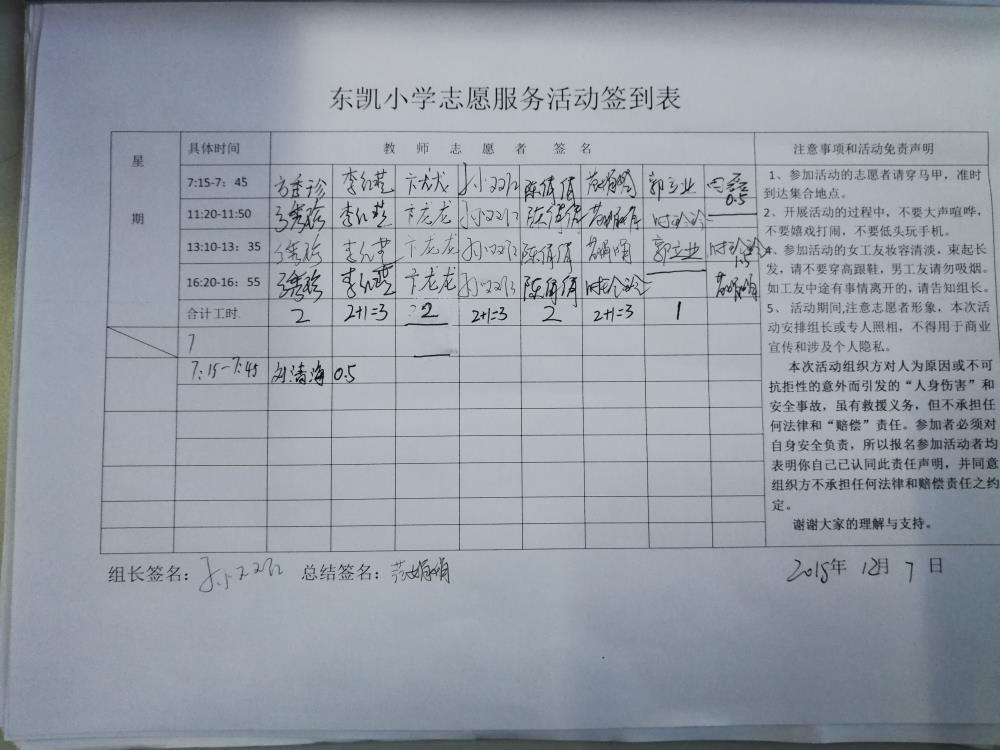 东凯小学志愿服务活动签到表
星期 具体时间 教师志愿者签名 注意事项和活动免责声明
7:15-7:45 李红芝 卞龙龙 孙双红 陈倩倩 郭立业 0.5
11:20-11:50 李红芝 卞龙龙 孙双红 陈倩倩 时玲玲
13:10-13:35 李红芝 卞龙龙 孙双红 陈倩倩 郭立业 时玲玲 1.5
16:20-16:55 李红芝 卞龙龙 孙双红 陈倩倩 时玲玲
合计工时 2 2+1=3 2 2+1=3 2 2+1=3 1
7
7:15-7:45 刘清海 0.5
1、参加活动的志愿者请穿马甲,准时
到达集合地点。
2、开展活动的过程中,不要大声喧哗,
不要嬉戏打闹,不要低头玩手机。
4、参加活动的女工友妆容清淡,束起长
发,请不要穿高跟鞋,男工友请勿吸烟。
如工友中途有事情离开的,请告知组长。
5、活动期间,注意志愿者形象,本次活
动安排组长或专人照相,不得用于商业
宣传和涉及个人隐私。
本次活动组织方对人为原因或不可
抗拒性的意外而引发的“人身伤害”和
安全事故,虽有救援义务,但不承担任
何法律和“赔偿”责任。参加者必须对
自身安全负责,所以报名参加活动者均
表明你自己已认同此责任声明,并同意
组织方不承担任何法律和赔偿责任之约
定。
谢谢大家的理解与支持。
组长签名:孙双红 总结签名: 2018年 12月 7 日